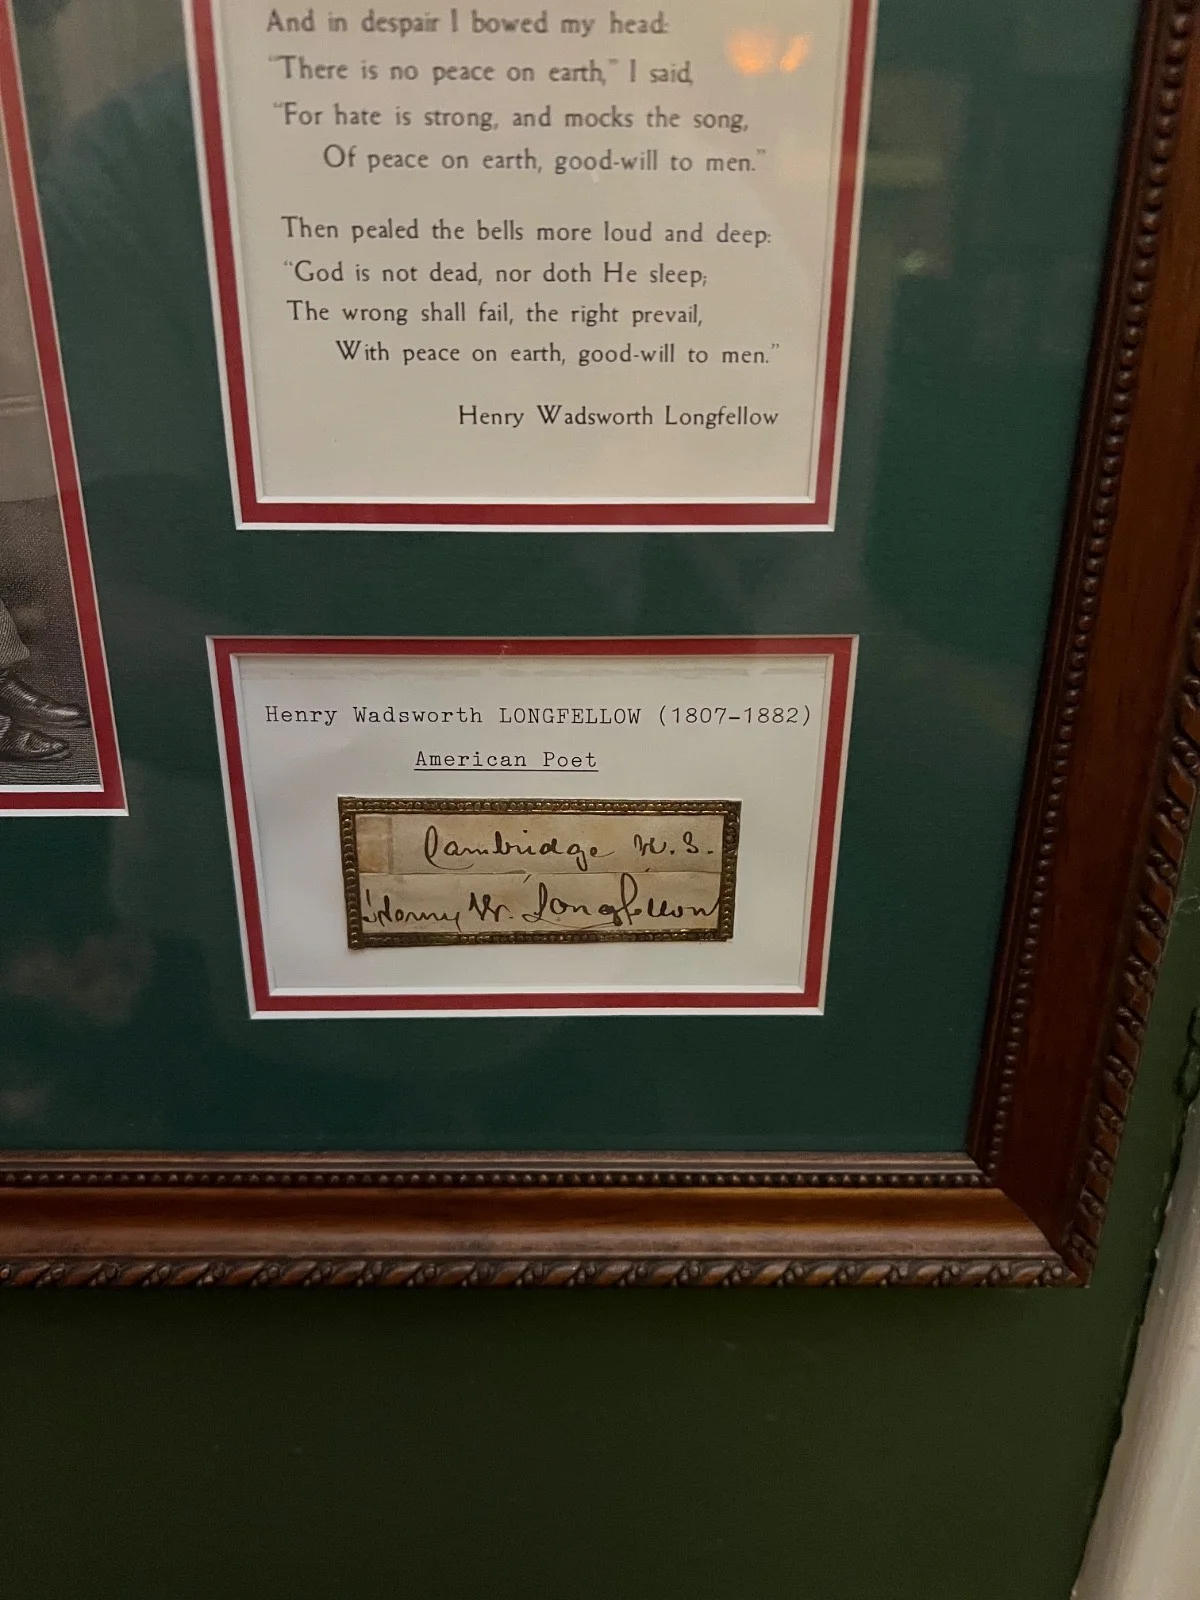 And in despair I bowed my head:
"There is no peace on earth," I said,
"For hate is strong, and mocks the song,
Of peace on earth, good-will to men."
Then pealed the bells more loud and deep:
"God is not dead, nor doth He sleep;
The wrong shall fail, the right prevail,
With peace on earth, good-will to men."
Henry Wadsworth Longfellow
Henry Wadsworth LONGFELLOW (1807-1882)
American Poet
Cambridge
Henry W. Longfellow